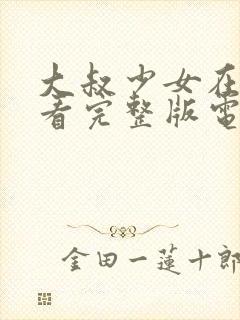 大叔少女在
看完整版電
金田一蓮十郎